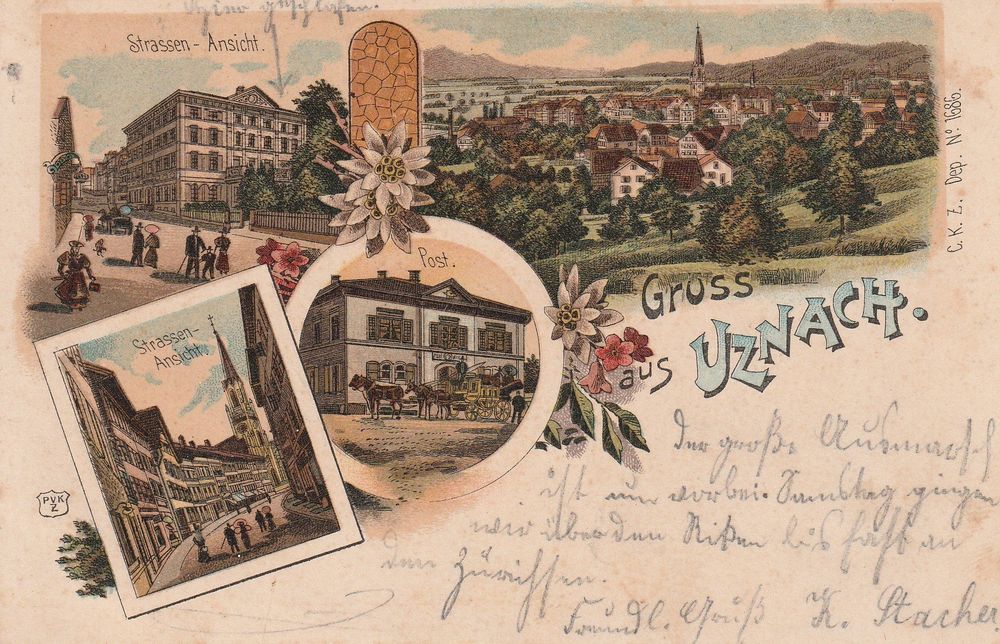 geschlafen.
Strassen-Ansicht.
Post.
Strassen-
Ansicht.
PVK
Z
C. K. Z. Dep. No. 1686.
Gruss
aus
UZNACH.
Der große Ausmarsch
ist nun vorbei. Samstag gingen
wir über den Ricken bis fast an
den Zürichsee.
Freundl. Gruß K. Stacher